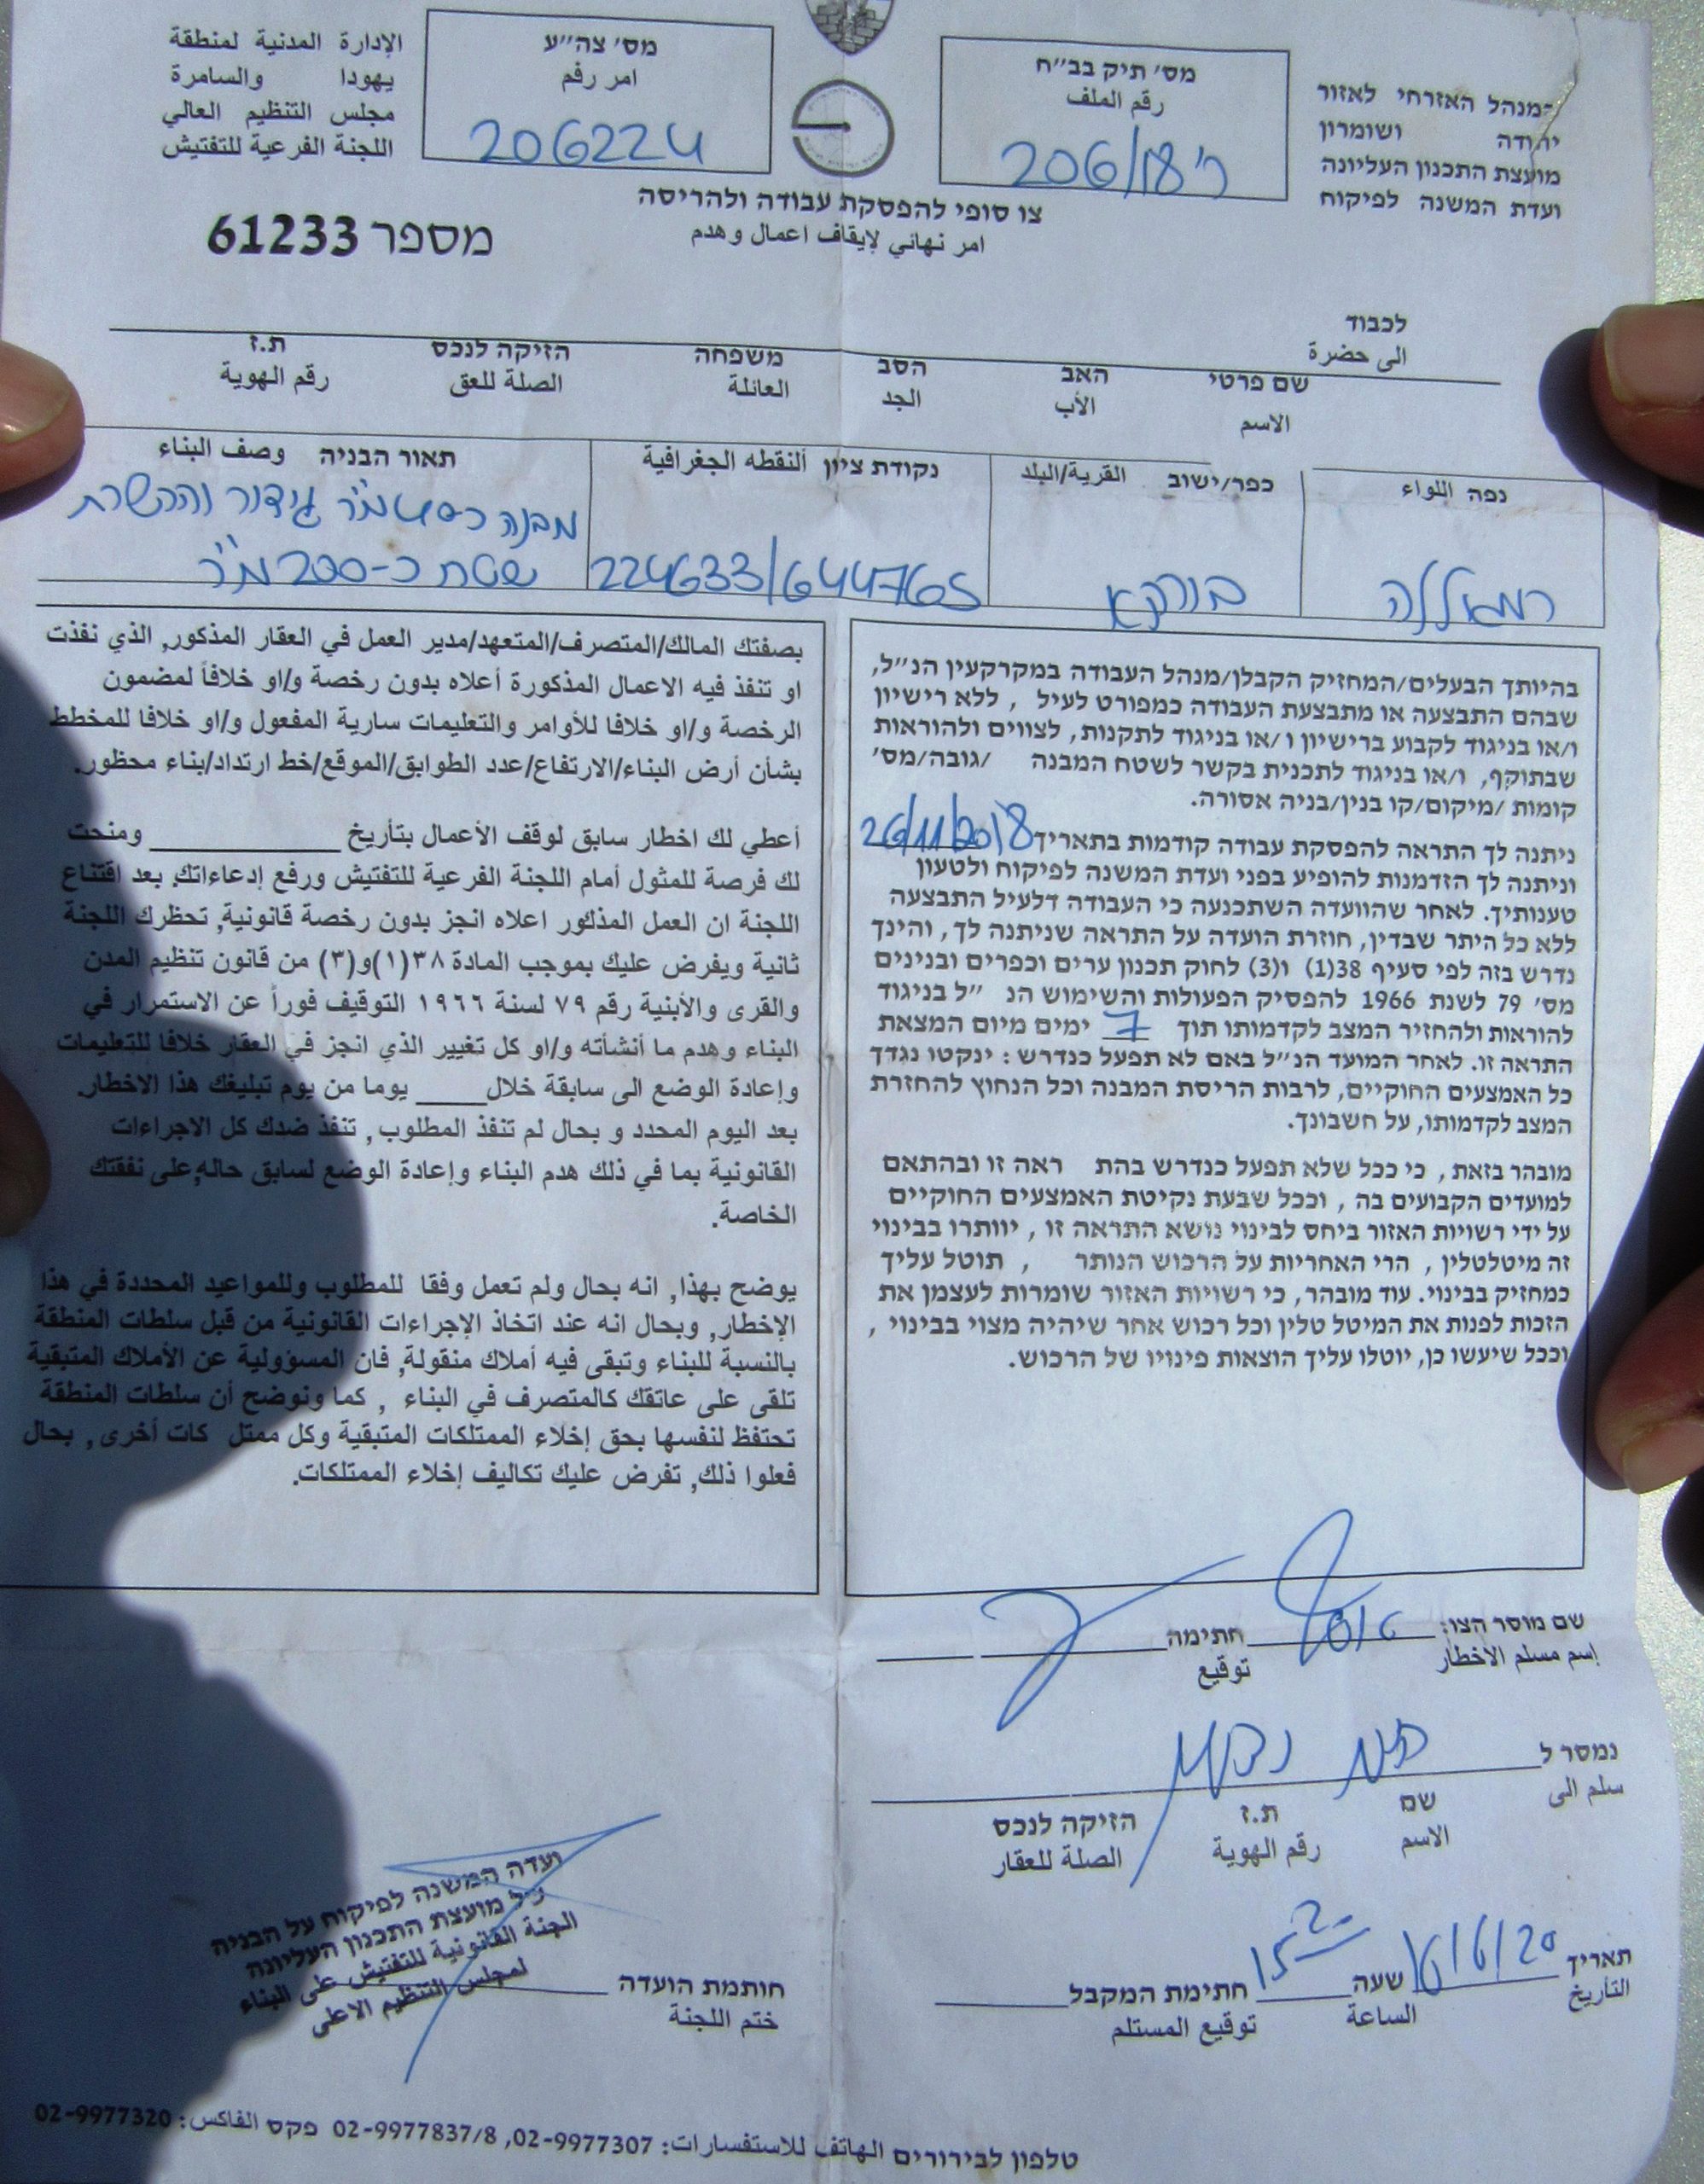 המנהל האזרחי לאזור
יהודה ושומרון
מועצת התכנון העליונה
ועדת המשנה לפיקוח
מס׳ תיק בב״ח
رقم الملف
ר' 206/18
מס׳ צה״ע
امر رقم
206224
الإدارة المدنية لمنطقة
يهودا والسامرة
مجلس التنظيم العالي
اللجنة الفرعية للتفتيش
צו סופי להפסקת עבודה ולהריסה
امر نهائي لإيقاف اعمال وهدم
מספר 61233
לכבוד
الى حضرة
שם פרטי האב הסב משפחה הזיקה לנכס ת.ז
الاسم الأب الجد العائلة الصلة للعق رقم الهوية
נפה اللواء
רמאללה
כפר/ישוב القرية/البلد
בורקא
נקודת ציון النقطه الجغرافية
224633/644765
תאור הבניה وصف البناء
מבנה גידור והכשרת
שטח כ-200 מ"ר
בהיותך הבעלים/המחזיק הקבלן/מנהל העבודה במקרקעין הנ״ל,
שבהם התבצעה או מתבצעת העבודה כמפורט לעיל , ללא רישיון
ו/או בניגוד לקבוע ברישיון ו /או בניגוד לתקנות, לצווים ולהוראות
שבתוקף, ו/או בניגוד לתכנית בקשר לשטח המבנה /גובה/מס׳
קומות /מיקום/קו בנין/בניה אסורה.
ניתנה לך התראה להפסקת עבודה קודמות בתאריך 26/11/2018
וניתנה לך הזדמנות להופיע בפני ועדת המשנה לפיקוח ולטעון
טענותיך. לאחר שהוועדה השתכנעה כי העבודה דלעיל התבצעה
ללא כל היתר שבדין, חוזרת הועדה על התראה שניתנה לך, והינך
נדרש בזה לפי סעיף 38(1) ו(3) לחוק תכנון ערים וכפרים ובנינים
מס׳ 79 לשנת 1966 להפסיק הפעולות והשימוש הנ ״ל בניגוד
להוראות ולהחזיר המצב לקדמותו תוך 7 ימים מיום המצאת
התראה זו. לאחר המועד הנ״ל באם לא תפעל כנדרש : ינקטו נגדך
כל האמצעים החוקיים, לרבות הריסת המבנה וכל הנחוץ להחזרת
המצב לקדמותו, על חשבונך.
מובהר בזאת , כי ככל שלא תפעל כנדרש בהת ראה זו ובהתאם
למועדים הקבועים בה , וככל שבעת נקיטת האמצעים החוקיים
על ידי רשויות האזור ביחס לבינוי נושא התראה זו , יוותרו בבינוי
זה מיטלטלין , הרי האחריות על הרכוש הנותר , תוטל עליך
כמחזיק בבינוי. עוד מובהר, כי רשויות האזור שומרות לעצמן את
הזכות לפנות את המיטל טלין וכל רכוש אחר שיהיה מצוי בבינוי ,
וככל שיעשו כן, יוטלו עליך הוצאות פינויו של הרכוש.
بصفتك المالك/المتصرف/المتعهد/مدير العمل في العقار المذكور, الذي نفذت
او تنفذ فيه الاعمال المذكورة أعلاه بدون رخصة و/او خلافاً لمضمون
الرخصة و/او خلافا للأوامر والتعليمات سارية المفعول و/او خلافا للمخطط
بشأن أرض البناء/الارتفاع/عدد الطوابق/الموقع/خط ارتداد/بناء محظور.
أعطي لك اخطار سابق لوقف الأعمال بتأريخ ____________ ومنحت
لك فرصة للمثول أمام اللجنة الفرعية للتفتيش ورفع إدعاءاتك. بعد اقتناع
اللجنة ان العمل المذكور اعلاه انجز بدون رخصة قانونية, تحظرك اللجنة
ثانية ويفرض عليك بموجب المادة ٣٨(١)و(٣) من قانون تنظيم المدن
والقرى والأبنية رقم ٧٩ لسنة ١٩٦٦ التوقيف فوراً عن الاستمرار في
البناء وهدم ما أنشأته و/او كل تغيير الذي انجز في العقار خلافا للتعليمات
وإعادة الوضع الى سابقة خلال_____ يوما من يوم تبليغك هذا الاخطار.
بعد اليوم المحدد و بحال لم تنفذ المطلوب, تنفذ ضدك كل الاجراءات
القانونية بما في ذلك هدم البناء وإعادة الوضع لسابق حاله,على نفقتك
الخاصة.
يوضح بهذا, انه بحال ولم تعمل وفقا للمطلوب وللمواعيد المحددة في هذا
الإخطار, وبحال انه عند اتخاذ الإجراءات القانونية من قبل سلطات المنطقة
بالنسبة للبناء وتبقى فيه أملاك منقولة, فان المسؤولية عن الأملاك المتبقية
تلقى على عاتقك كالمتصرف في البناء , كما ونوضح أن سلطات المنطقة
تحتفظ لنفسها بحق إخلاء الممتلكات المتبقية وكل ممتل كات أخرى, بحال
فعلوا ذلك, تفرض عليك تكاليف إخلاء الممتلكات.
שם מוסר הצו: חתימה
إسم مسلم الاخطار توقيع
נמסר ל
سلم الى
שם ת.ז הזיקה לנכס
الاسم رقم الهوية الصلة للعقار
תאריך 16/6/20 שעה 15 חתימת המקבל
التأريخ الساعة توقيع المستلم
ועדה המשנה לפיקוח על הבניה
של מועצת התכנון העליונה
اللجنة القانونية للتفتيش على البناء
لمجلس التنظيم الاعلى
חותמת הועדה
ختم اللجنة
טלפון לבירורים الهاتف للاستفسارات: 02-9977307, 02-9977837/8 פקס الفاكس: 02-9977320